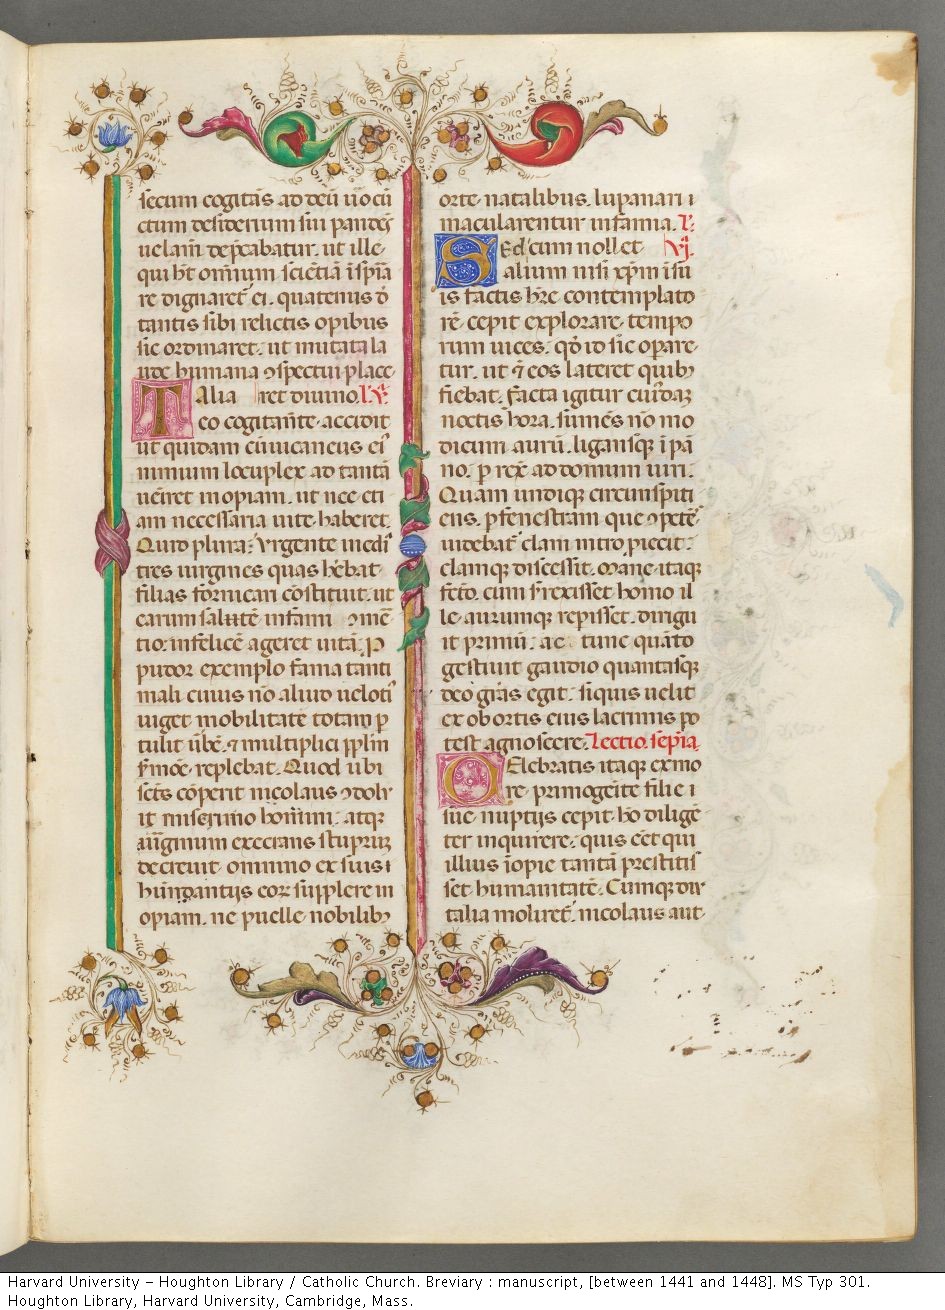 secum cogitās ad deū uocū
ctum desiderium sūi pandēs
uelam̄ dep̄cabatur. ut ille
qui h̄t om̄ium sciētia īspīa
re dignaret̄ ei. quatenus d̄
tantis sibi relictis opibus
sic ordinaret. ut mutata la
ude humana ɔspectui place
Talia ret diuino. l'. V.
eo cogitan̄te accidit
ut quidam cūuicaneus eī
nimium locuplex ad tantā
uēiret inopiam. ut nec eti
am necessaria uite haberet.
Quid plura: Vrgente inedī
tres uirgines quas h̄ebat
filias fornicari cōstituit. ut
earum saltē infami ɔmē
tio infelicē ageret uitā. P
pudor exemplo fama tanti
mali cuius nō aliud uelotī
uiget mobilitate totam p
tulit ūbē. ⁊ multiplici pplm̄
f̄mōe replebat. Quod ubi
sc̄ts cōperit nicolaus ɔdolu
it miserimo homīni. atq̄
uīginum execrans stuprū
decreuit omnino ex suis i
hūndantijs eorꝝ supplere in
opiam. ne puelle nobilibꝰ
orte natalibus. lupanari i
macularentur infamia. l'.
Sed cum nollet Vi.
alium nisi xp̄m ī su
is factis h̄re contemplato
rē. cepit explorare tempo
rum uices. qd̄ id sic opare
tur. ut ⁊ eos lateret quibꝰ
fiebat. Facta igitur cuīdā
noctis hora. sumēs nō mo
dicum aurū. ligansq̄ ī pā
no. prex̄ ad domum uiri.
Quam undiq̄ circūspiti
ens. p fenestram que ɔpetē
uidebat̄ clam intro piecit.
clamq̄ discessit. Mane itaq̄
fc̄to. cum srexisset homo il
le. aurumq̄ repisset. dirigu
it primū. ac tunc quāto
gestiuit gaudio quantasq̄
deo grās egit. siquis uelit
ex obortis eius lacrimis po
test agnoscere. Lectio. sep̄ia.
Celebratis itaque ex mo
re primogēite filie i
sue nuptijs cepit hō diligē
ter inquirere. quis eēt qui
illius īopie tantā prestitis
set humanitatē. Cumq̄ diu
talia moliret̄. nicolaus aut
Harvard University – Houghton Library / Catholic Church. Breviary : manuscript, [between 1441 and 1448]. MS Typ 301.
Houghton Library, Harvard University, Cambridge, Mass.